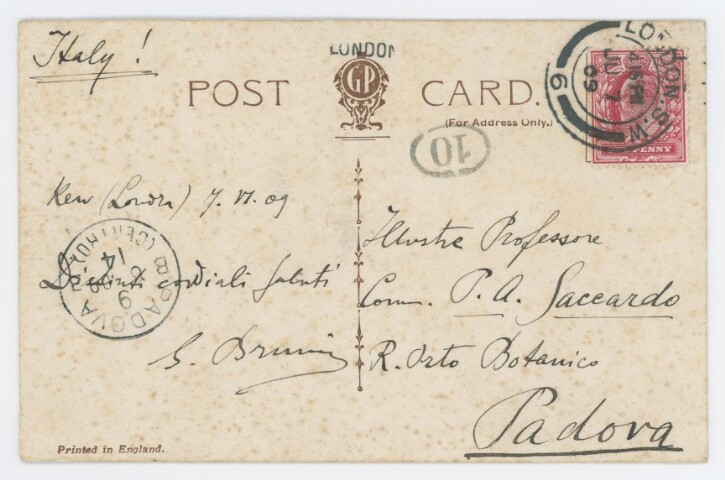 Italy!
LONDON
GP
POST CARD.
(For Address Only.)
LONDON. S.W.
4.15 PM
JU 7
09
6
PENNY
10
Kew (Londra) 7. VI. 09
Distinti cordiali saluti
PADOVA
9 6 09
14
Illustre Professore
Comm. P. A. Saccardo
R. Orto Botanico
Padova
Printed in England.